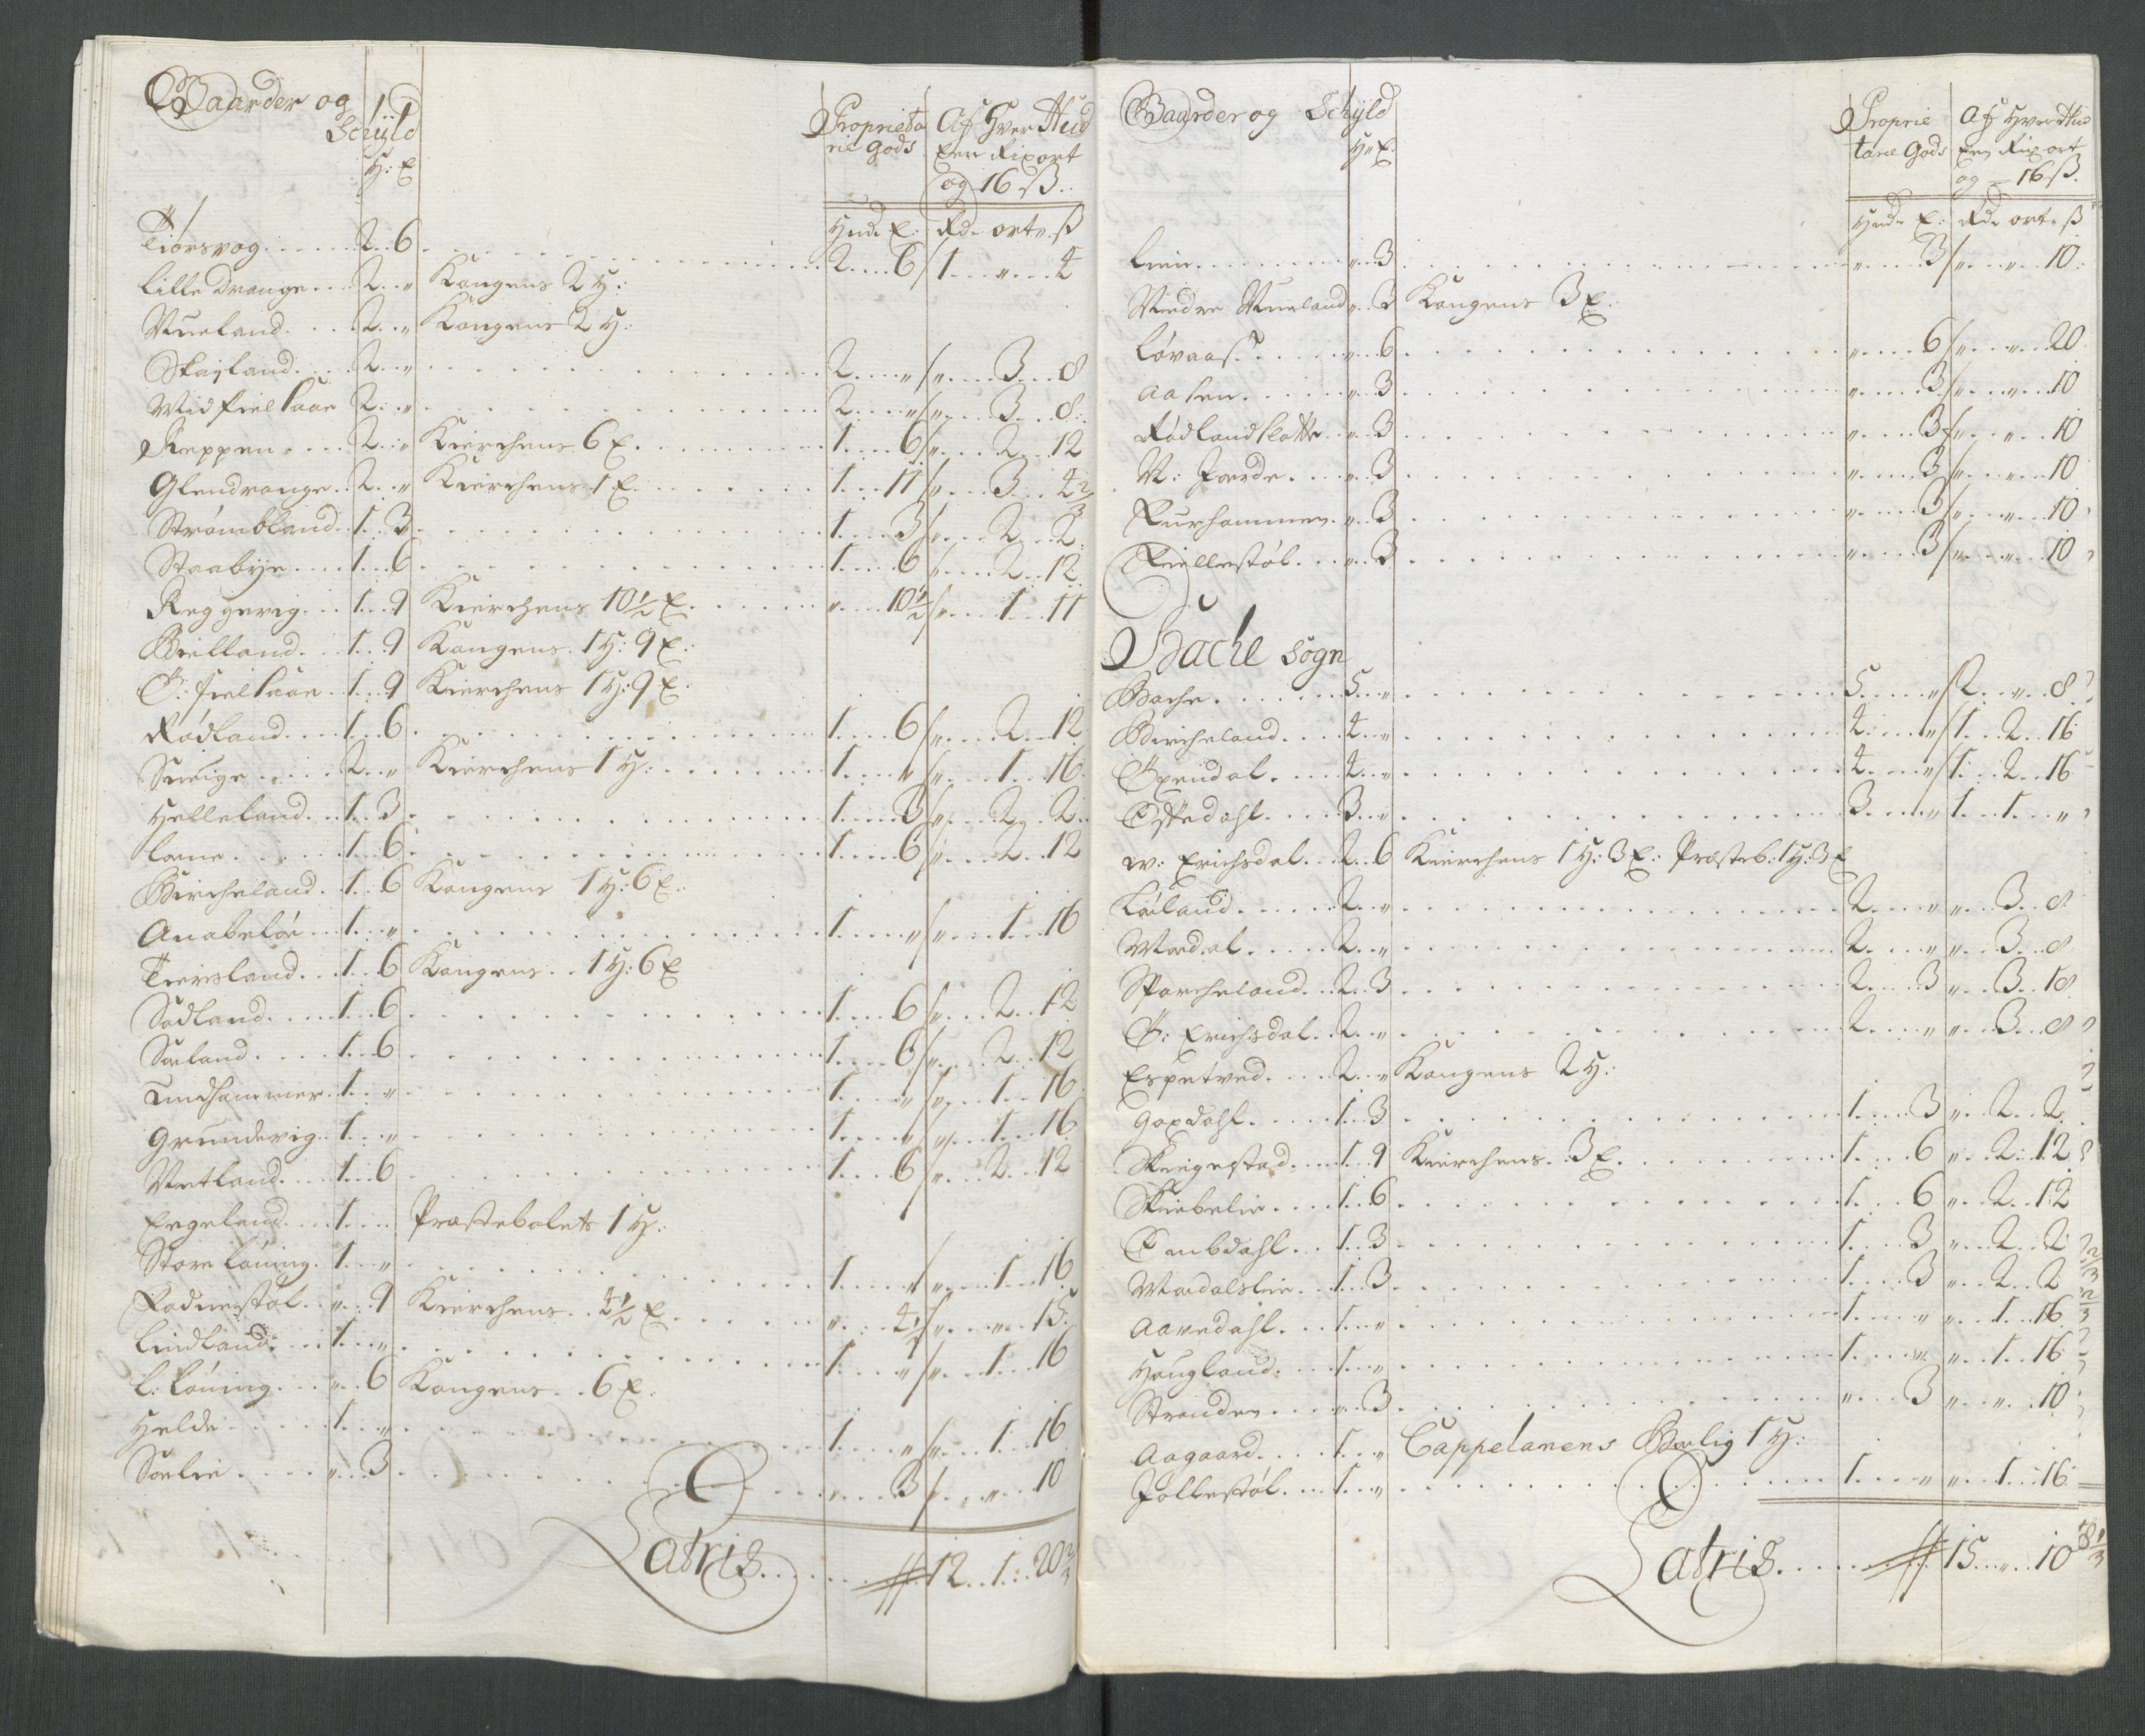 Gaarder og
Schyld
H: E
Proprieta
rie Gods
Af Hver Hud
Een Rixort
og 16 ß..
Hud: E: Rd: ort: ß
Tiørsvog.....2..6..........2....6 / 1...„...4
Lille Drange...2..„ Kongens 2 H:
Nueland....2..„ Kongens 2 H:
Skagland....2..„..........2....„ / „...3...8
Midfielsaae 2..„..........2....„ / „...3...8:
Reppen....2..„ Kierchens 6 E.......1....6 / „...2...12
Glendrange..2..„ Kierchens 1 E.......1....11 / „...3...4 2/3
Strømbland..1..3..........1....3 / „...2...2:
Staabye....1..6..........1....6 / „...2...12
Reggevig....1..9 Kierchens 10½ E.......„....10½ / „...1...11
Bielland....1..9 Kongens 1 H: 9 E:
Ø: fielsaae..1..9 Kierchens 1 H: 9 E:
Rødland....1..6..........1....6 / „...2...12
Sveige.....2..„ Kierchens 1 H:.......1....„ / „...1...16:
Helleland...1..3..........1....3 / „...2...2..
Lone......1..6..........1....6 / „...2...12
Bircheland..1..6 Kongens 1 H: 6 E:
Anabeløe....1..„..........1....„ / „...1...16
Tiersland...1..6 Kongens..1 H: 6 E
Sødland....1..6..........1....6 / „...2...12
Søeland....1..6..........1....6 / „...2...12
Lindhammer..1..„..........1....„ / „...1...16
Grundevig..1..„..........1....„ / „...1...16
Vetland....1..6..........1....6 / „...2...12
Ergeland....1.... Præstebolets 1 H:
Store Løning.1..„..........1....„ / „...1...16
Rødnestøl..„..9 Kierchens..4½ E.......„....4½ / „...„...15
Lindland....1..„..........1....„ / „...1...16
L: Løning...„..6 Kongens..6 E:
Helde......1..„..........1....„ / „...1...16
Sølie......„..3..........„....3 / „...„...10
Latris.......12..1..20 2/3
Gaarder og Schyld
H: E:
Proprie
tarie Gods
Af Hver Hud
Een Rixort
og 16 ß.
Hud: E: Rd: ort: ß
Lien........„..3..........„....3 / „...„...10:
Nedre Nueland „..3 Kongens 3 E:
Løvaas......„..6..........„....6 / „...„...20
Aasen......„..3..........„....3 / „...„...10
Rødlandslotte..„..3..........„....3 / „...„...10
N: Jorde....„..3..........„....3 / „...„...10
Furhammer..„..3..........„....3 / „...„...10
Fiellestøl...„..3..........„....3 / „...„...10
Bache Sogn
Bache......5..„..........5....„ / 2...„...8
Bircheland....4..„..........4....„ / 1...2...16
Øxendal....4..„..........4....„ / 1...2...16
Ostedahl....3..„..........3....„ 1...1...„
W: Erichsdal..2..6 Kierchens 1 H: 3 E: Præsteb: 1 H: 3 E
Løiland.....2..„..........2....„ „...3...8
Mødal.....2..„..........2....„ „...3...8
Sporcheland..2..3..........2....3 „...3...18
Ø: Erichsdal..2..„..........2....„ „...3...8
Espetved....2..„ Kongens 2 H:
Goxdahl....1..3..........1....3 „...2...2
Skiegestad...1..9 Kierchens..3 E.......1....6 „...2...12
Skiebelie...1..6..........1....6 „...2...12
Ombdahl...1..3..........1....3 „...2...2
Mødalslie...1..3..........1....3 „...2...2
Aavedahl...1..„..........1....„ „...1...16
Hougland....1..„..........1....„ „...1...16
Stranden....„..3..........„....3 „...„...10
Aagaard....1..„ Cappelanens Bolig 1 H:
Jøllestøl...1..„..........1....„ „...1...16
Latris.......15..„..10